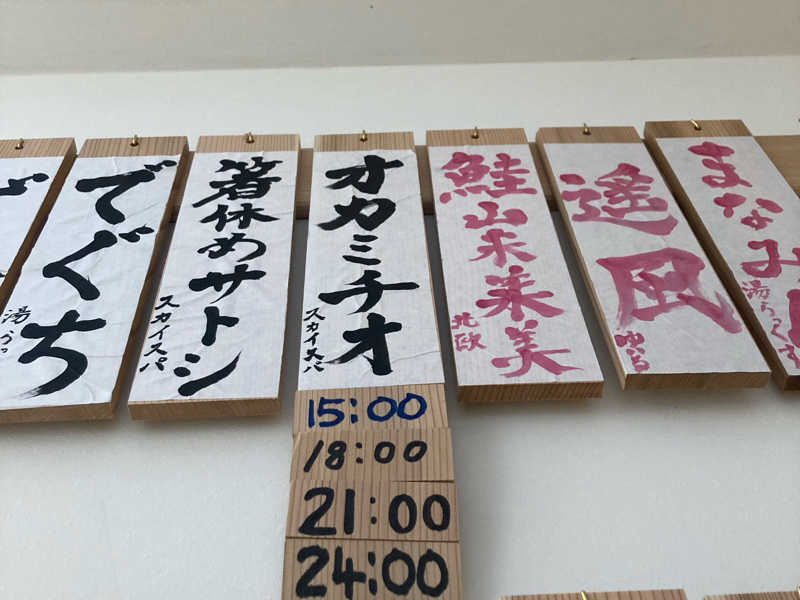 でぐち
湯らっ
箸休めサトシ
スカイスパ
オカミチオ
スカイスパ
15:00
18:00
21:00
24:00
鮭山未菜美
北欧
遥凪
ゆいる
まなみ
湯らっくす